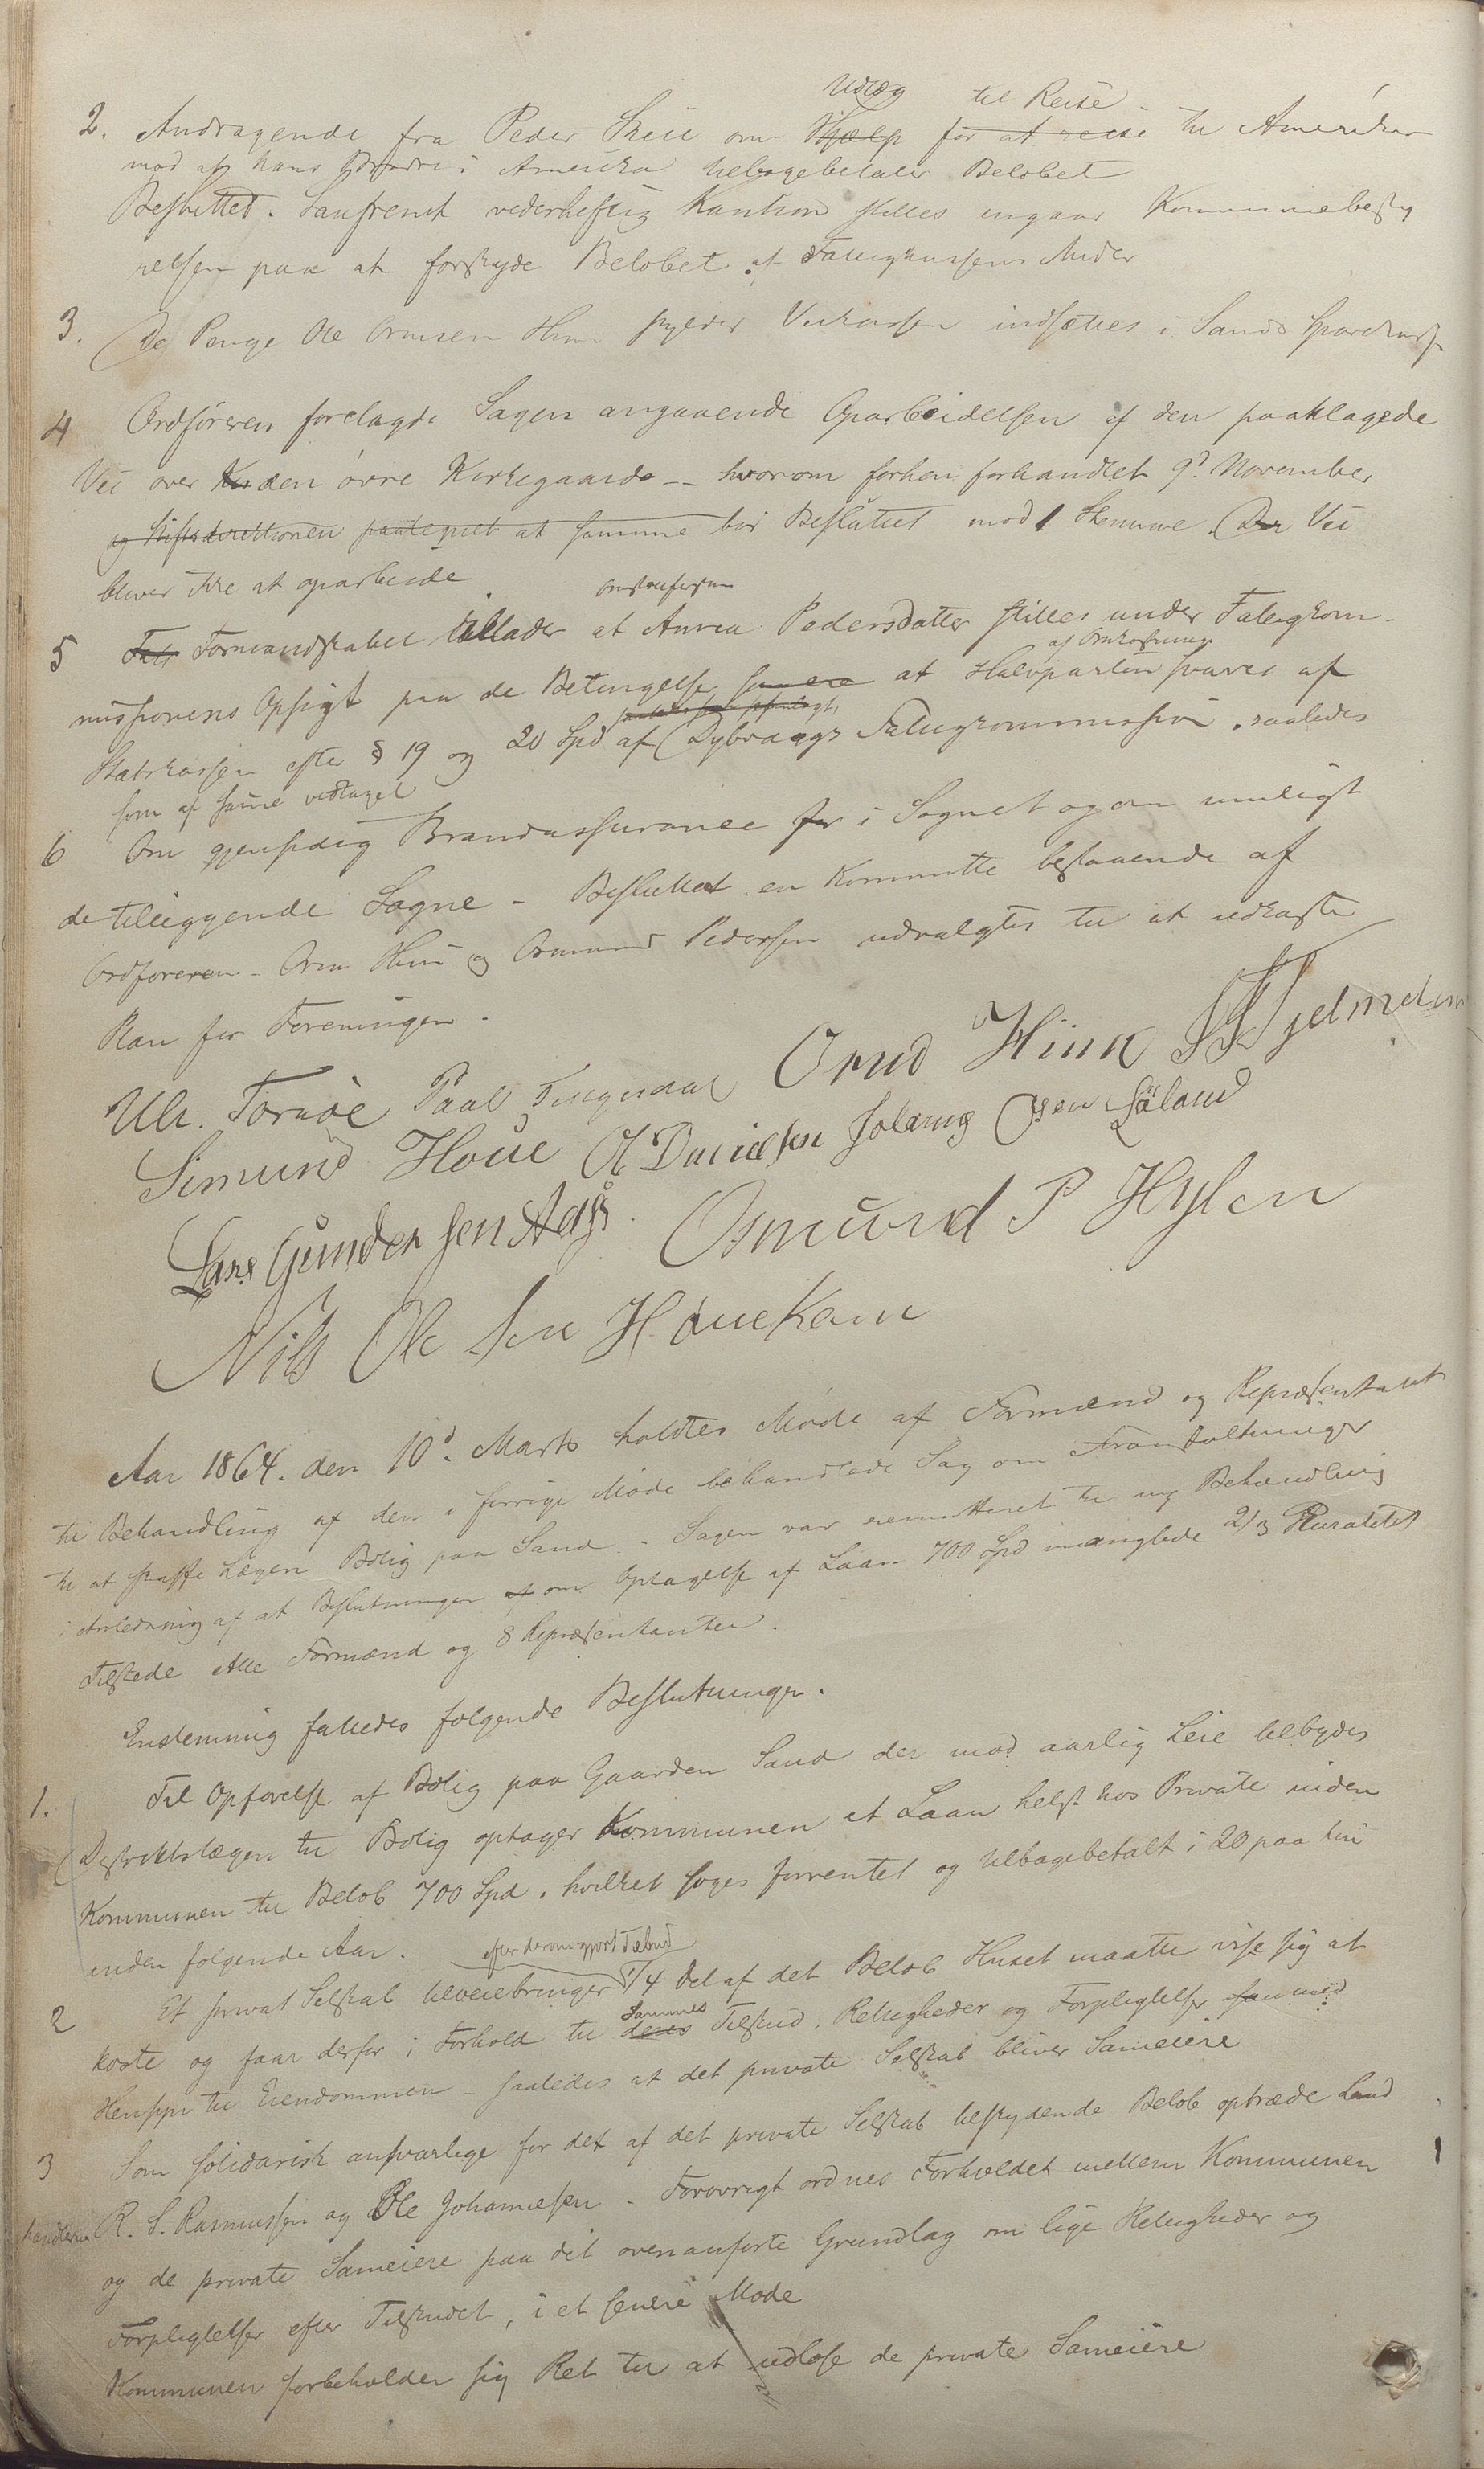 Udlæg til Reise
2. Andragende fra Peder Skeie om Hjælp for at reise til Amerika
mod at hans Brødre i Amerika tilbagebetaler Beløbet
Besluttet. Saafremt vederheftig Kaution stilles ingaar Kommunebesty
relsen paa at forskyde Beløbet af Fattigkassens Midler
3. De Penge Ole Ormsen Hiim skylder Veikassen indsættes i Sands Sparekasse
4 Ordføreren forelagde Sagen angaaende Oparbeidelsen af den paaklagede
Vei over den øvre Kirkegaard – hvorom forhen forhandlet 9d November
og Stiftsdirektionen at samme bør Besluttet mod 1 Stemme. Der Vei
bliver ikke at oparbeide
5 Formandskabet tillader at Anna Pedersdatter stilles under Fattigkom-
af Omkostninger
missionens Opsigt paa de Betingelse at Halvparten svares af
Statskassen efter § 19 og 20 Spd af Dybvaags Fattigkommission. saaledes
som af samme vedtaget
6 Om gjensidig Brandassurance for i Sognet og om muligt
de tilliggende Sogne – Besluttet en Kommitte bestaaende af
Ordføreren – Orm Hiim og Osmund Pedersen udvalgtes til at udkaste
Plan for Foreningen.
Ulr. Tornøe Paal Tengesdal Orm Hiim
Simund Hoüe O Davidsen Solaug Osen Løland
Lars Gundersen Osmund P Hylen
Nils Ole Sen Hønekam
Aar 1864. den 10d. Marts holdtes Møde af Formænd og Repræsentant
til Behandling af den i forrige Møde behandlede Sag om Foranstaltninger
til at skaffe Lægen Bolig paa Sand. – Sagen var remitteret til ny Behandling
i Anledning af at Beslutningen om Optagelse af Laan 700 Spd manglede 2/3 Pluralitet
Tilstede Alle Formænd og 8 Repræsentanter.
Enstemmig fattedes følgende Beslutninger.
1. Til Opførelse af Bolig paa Gaarden Sand der mod aarlig Leie tilbydes
Distriktslægen til Bolig optager Kommunen et Laan helst hos Private inden
Kommunen til Beløb 700 Spd. hvilket søges forrentet og tilbagebetalt i 20 paa hin
anden følgende Aar.
efter derom gjort Tilbud
2 Et privat Selskab tilveiebringer 1/4 Del af det Beløb Huset maatte vise sig at
Sammes
koste og faar derfor i Forhold til deres Tilskud. Rettigheder og Forpligtelser
Hensyn til Eiendommen – saaledes at det private Selskab bliver Sameiere
3 Som solidarisk ansvarlige for det af det private Selskab tilskydende Beløb optræde Land
handlerne R. S. Rasmussen og Ole Johannesen – Forøvrigt ordnes Forholdet mellem Kommunen
og de private Sameiere paa det ovenanførte Grundlag om lige Rettigheder og
Forpligtelser efter Tilskudet, i et senere Møde
Kommunen forbeholder sig Ret til at udløse de private Sameiere